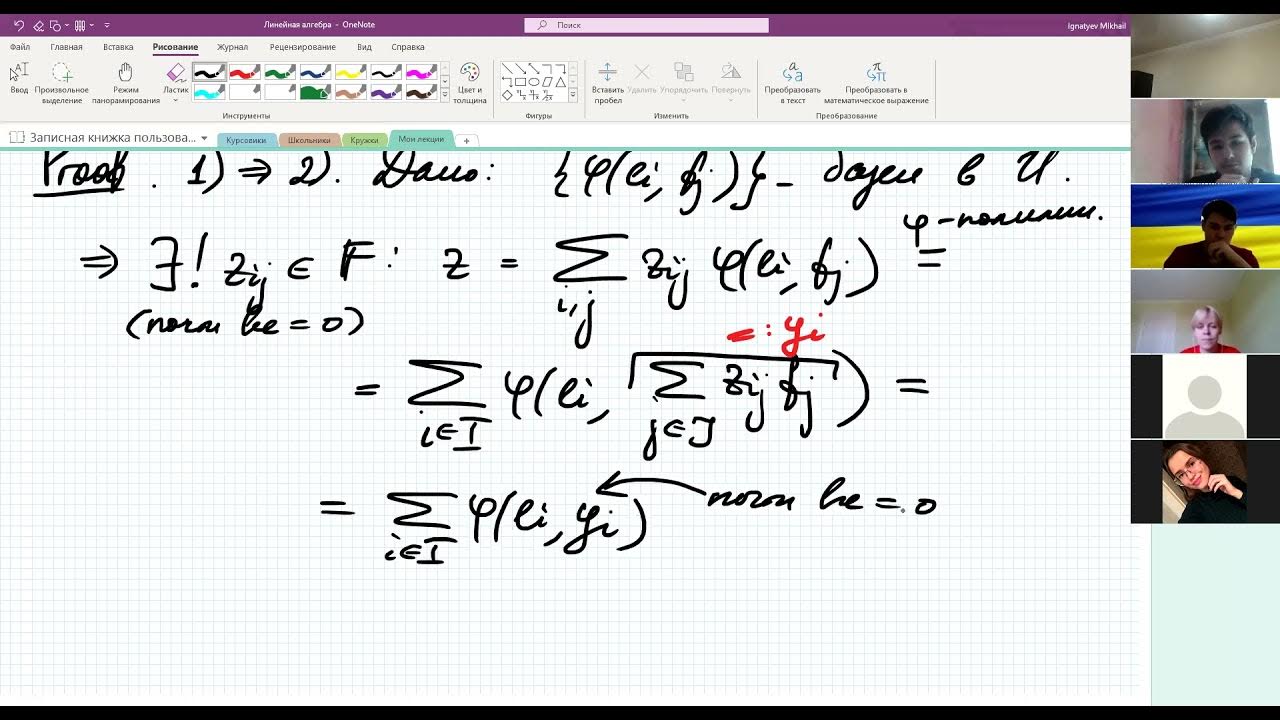 Линейная алгебра - OneNote
Поиск
Ignatyev MIkhail
Файл Главная Вставка Рисование Журнал Рецензирование Вид Справка
Ввод
Произвольное выделение
Режим панорамирования
Ластик
Цвет и толщина
Вставить пробел
Удалить
Упорядочить
Повернуть
Преобразовать в текст
Преобразовать в математическое выражение
Инструменты
Фигуры
Изменить
Преобразование
Записная книжка пользова...
Курсовики Школьники Кружки Мои лекции +
Proof. 1) ⇒ 2). Дано: {φ(ei, fj)} - базис в U.
φ-полилин.
⇒ ∃! zij ∈ F: z = ∑ i,j zij φ(ei, fj) =
(почти все = 0)
=: yi
= ∑ i∈I φ(ei, ∑ j∈J zij fj) =
= ∑ i∈I φ(ei, yi) почти все = 0